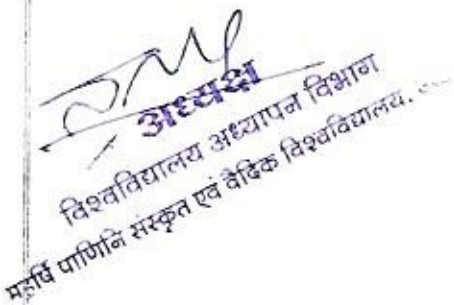 अध्यक्ष
विश्वविद्यालय अध्यापन विभाग
महर्षि पाणिनि संस्कृत एवं वैदिक विश्वविद्यालय,